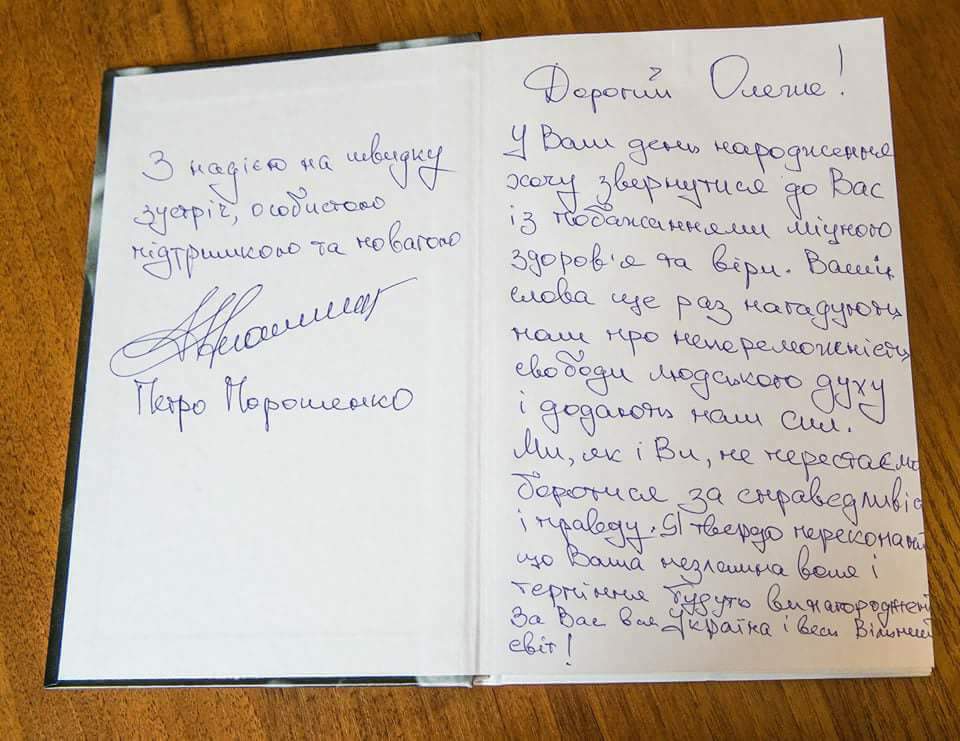 З надією на швидку
зустріч, особистою
підтримкою та повагою
Петро Порошенко
Дорогий Олегие!
У Ваш день народження
хочу звернутися до Вас
із побажаннями міцного
здоров'я та віри. Ваші
слова ще раз нагадують
нам про непереможність
свободи людського духу
і додають нам сил.
Ми, як і Ви, не перестаємо
боротися за справедливіс
і правду. Я твердо перекона
що Ваша незламна воля і
терпіння будуть винагороджені
За Вас вся Україна і весь Вільний
світ!